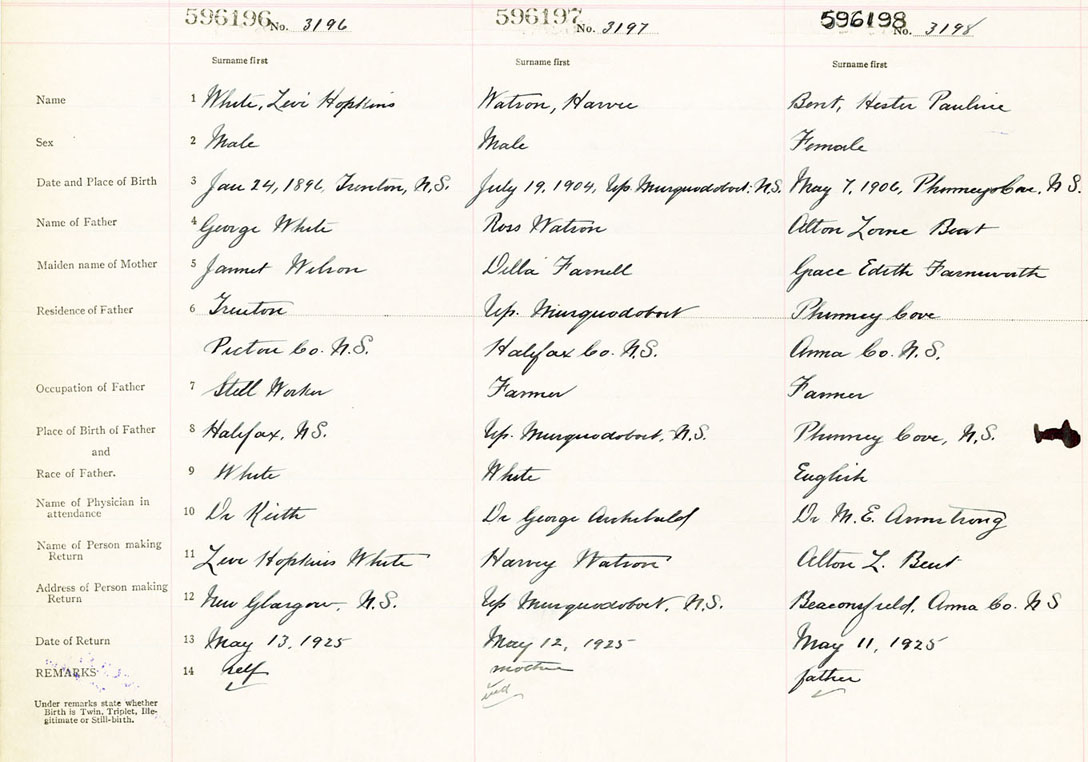 596196 No. 3196 596197 No. 3197 596198 No. 3198
Surname first Surname first Surname first
Name 1 White, Levi Hopkins Watson, Harvie Bent, Hester Pauline
Sex 2 Male Male Female
Date and Place of Birth 3 Jan 24, 1896, Trenton, N.S. July 19, 1904, Up. Musquodoboit, N.S. May 7, 1906, Phinneys Cove, N.S.
Name of Father 4 George White Ross Watson Alton Lorne Bent
Maiden name of Mother 5 Jannet Wilson Della Farnell Grace Edith Farnsworth
Residence of Father 6 Trenton Up. Musquodoboit Phinney Cove
Pictou Co. N.S. Halifax Co. N.S. Anna Co. N.S.
Occupation of Father 7 Steel Worker Farmer Farmer
Place of Birth of Father 8 Halifax, N.S. Up. Musquodoboit, N.S. Phinney Cove, N.S.
and
Race of Father. 9 White White English
Name of Physician in
attendance 10 Dr Keith Dr George Archibald Dr M. E. Armstrong
Name of Person making
Return 11 Levi Hopkins White Harvey Watson Alton L. Bent
Address of Person making
Return 12 New Glasgow, N.S. Up Musquodoboit, N.S. Beaconsfield, Anna Co. N S
Date of Return 13 May 13, 1925 May 12, 1925 May 11, 1925
REMARKS 14 self mother father
Under remarks state whether
Birth is Twin, Triplet, Ille-
gitimate or Still-birth.